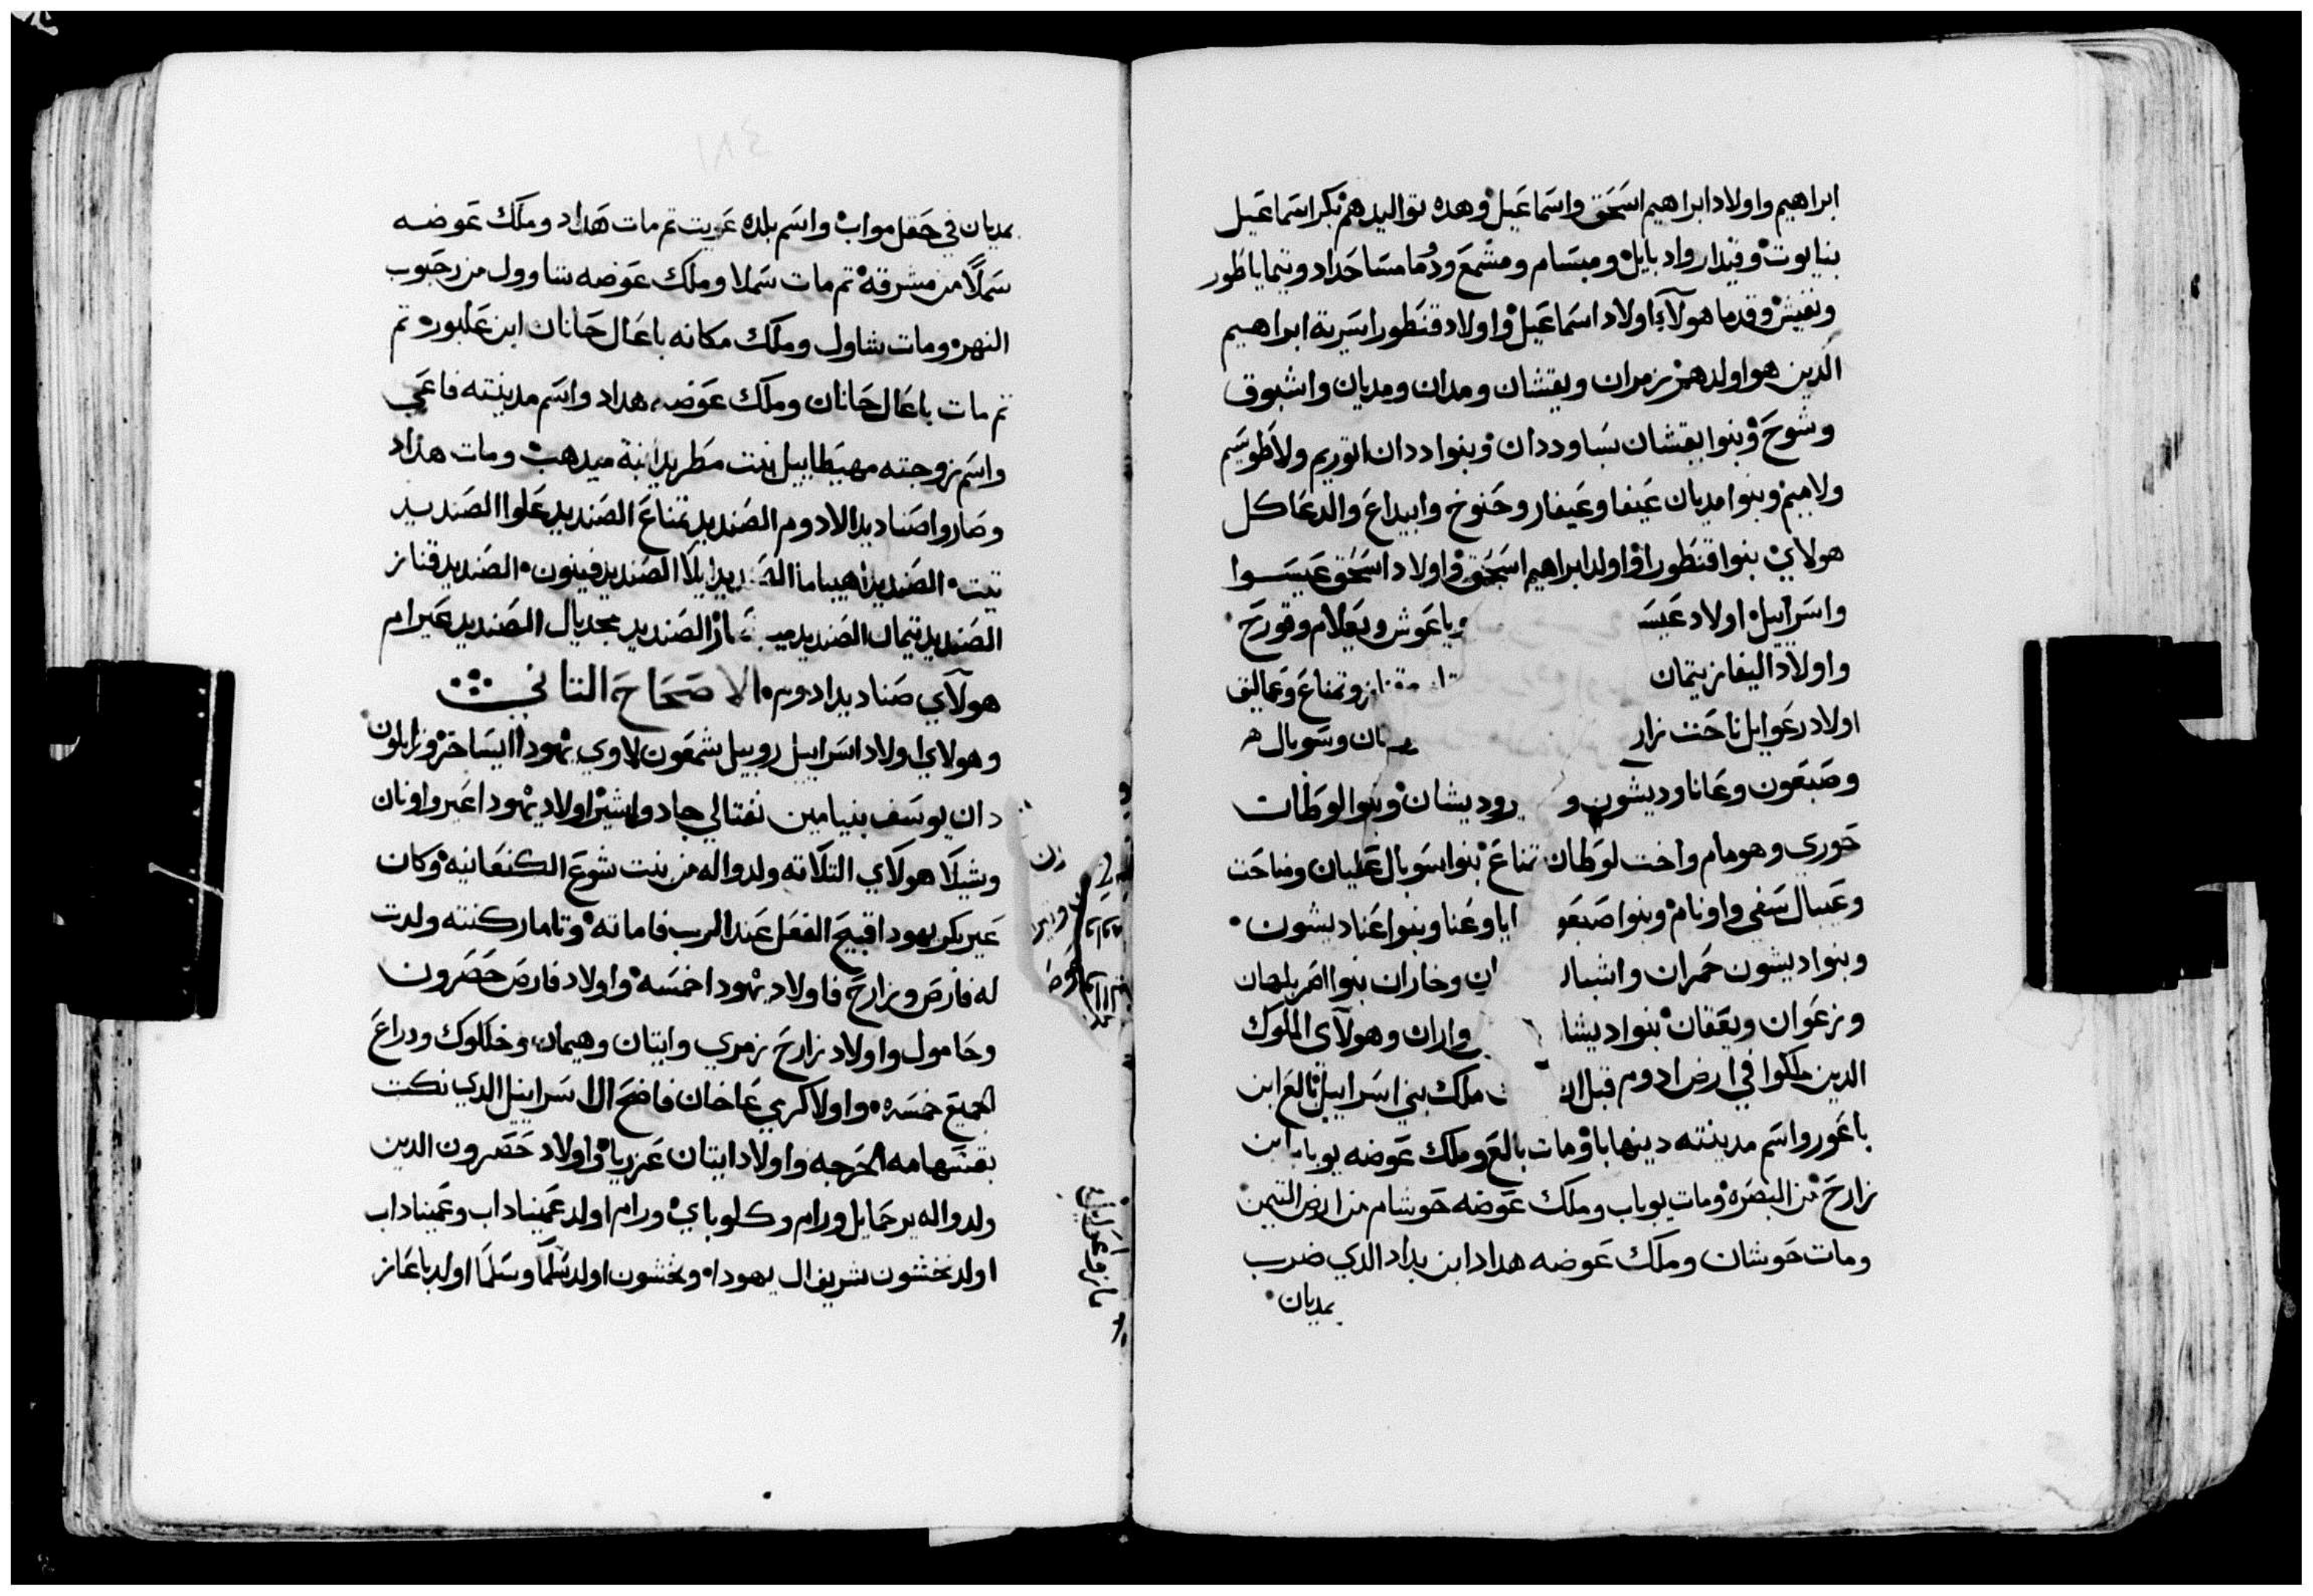 ابراهيم واولاد ابراهيم اسحق واسماعيل وهده تواليدهم بكر اسماعيل
بنايوت وقيدار وادبايل ومبسام ومشمع ودما مسا حداد وتيما ياطور
ونفيش وقدما هولآء اولاد اسماعيل واولاد قنطورا سرية ابراهيم
الدين هوا ولدهم زمران ويقشان ومدان ومديان واشبوق
وشوح وبنوا يقشان سبا وددان وبنوا ددان اتوريم ولاطوسيم
ولاميم وبنوا مديان عيفا وعيفار وحنوخ وابيداع والدعا كل
هولاي بنوا قنطورا واولد ابراهيم اسحق واولاد اسحق عيسوا
واسراييل اولاد عيسـ وياعوش ويعلام وقورح
واولاد اليفاز يتمان وتمناع وعماليق
اولاد رعوايل ناحت زار وسوبال
وصبعون وعانا وديشون و وديشان وبنوا لوطان
حوري وهومام واخت لوطان تمناع بنوا سوبال عليان ومناحت
وعيبال سفي واونام وبنوا صبعو ايا وعنا وبنوا عنا ديشون
وبنوا ديشون حمران واشبا ان وخاران بنوا اصر بلهان
وزعوان ويعقان بنوا ديشا واران وهولآى الملوك
الدين ملكوا في ارض ادوم قبل ملك بني اسراييل بالع ابن
باعور واسم مدينته دينهابا ومات بالع وملك عوضه يوباب ابن
زارح من البصره ومات يوباب وملك عوضه حوشام من ارض التيمن
ومات حوشان وملك عوضه هداد ابن بداد الدي ضرب
بمديان
بمديان في حقل مواب واسم بلده عويت تم مات هداد وملك عوضه
سملا من مشرقة تم مات سملا وملك عوضه شاوول من رحبوب
النهر ومات شاول وملك مكانه باعال حانان ابن عاخبور تم
تم مات باعال حانان وملك عوضه هداد واسم مدينته فاعي
واسم زوجته مهيطاييل بنت مطريد ابنة ميدهب ومات هداد
وصاروا صناديد الادوم الصنديد تمناع الصنديد علوا الصنديد
تيت الصنديد اهيباما الصـ ديد ايلا الصنديد فينون الصنديد قناز
الصنديد تيمان الصنديد الصنديد مجديال الصنديد عيرام
هولآي صناديد ادوم الاصحاح التاني
وهولاي اولاد اسراييل روبيل شمعون لاوي يهودا ايساخر وزابلون
دان يوسف بنيامين نفتالي جاد واشير اولاد يهودا عير واونان
وشيلا هولآي التلاته ولدوا له من بنت شوع الكنعانيه وكان
عير بكر يهودا قبيح الفعل عند الرب فاماته وتامار كنته ولدت
له فارص وزارح فاولاد يهودا خمسه واولاد فارص حصرون
وحامول واولاد زارح زمري وايتان وهيمان وخلكوك ودراع
الجميع خمسه واولا كرمي عاخان فاضح ال اسراييل الدي نكت
بقسهامه الحرجه واولاد ايتان عزريا واولاد حصرون الدين
ولدوا له يرحمايل ورام وكلوباي ورام اولد عميناداب وعميناداب
اولد نخشون شريف ال يهودا ونخشون اولد سلما وسلما اولد باعاز